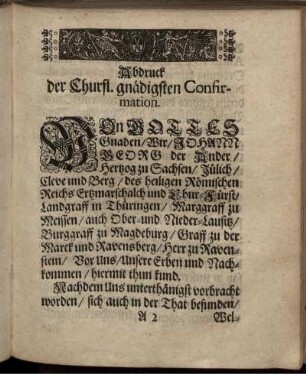 Abdruck
der Churfl. gnädigsten Confir-
mation.
VOn GOTTES
Gnaden/ Wir/ JOHANN
GEORG der Ander/
Hertzog zu Sachsen/ Jülich/
Cleve und Berg/ des heiligen Römischen
Reichs Ertzmarschalch und Chur-Fürst/
Landgraff in Thüringen/ Marggraff zu
Meissen/ auch Ober-und Nieder-Lausitz/
Burggraff zu Magdeburg/ Graff zu der
Marck und Ravensberg/ Herr zu Raven-
stein/ Vor Uns/ Unsere Erben und Nach-
kommen/ hiermit thun kund.
Nachdem Uns unterthänigst vorbracht
worden/ sich auch in der That befunden/
A 2 Wel-